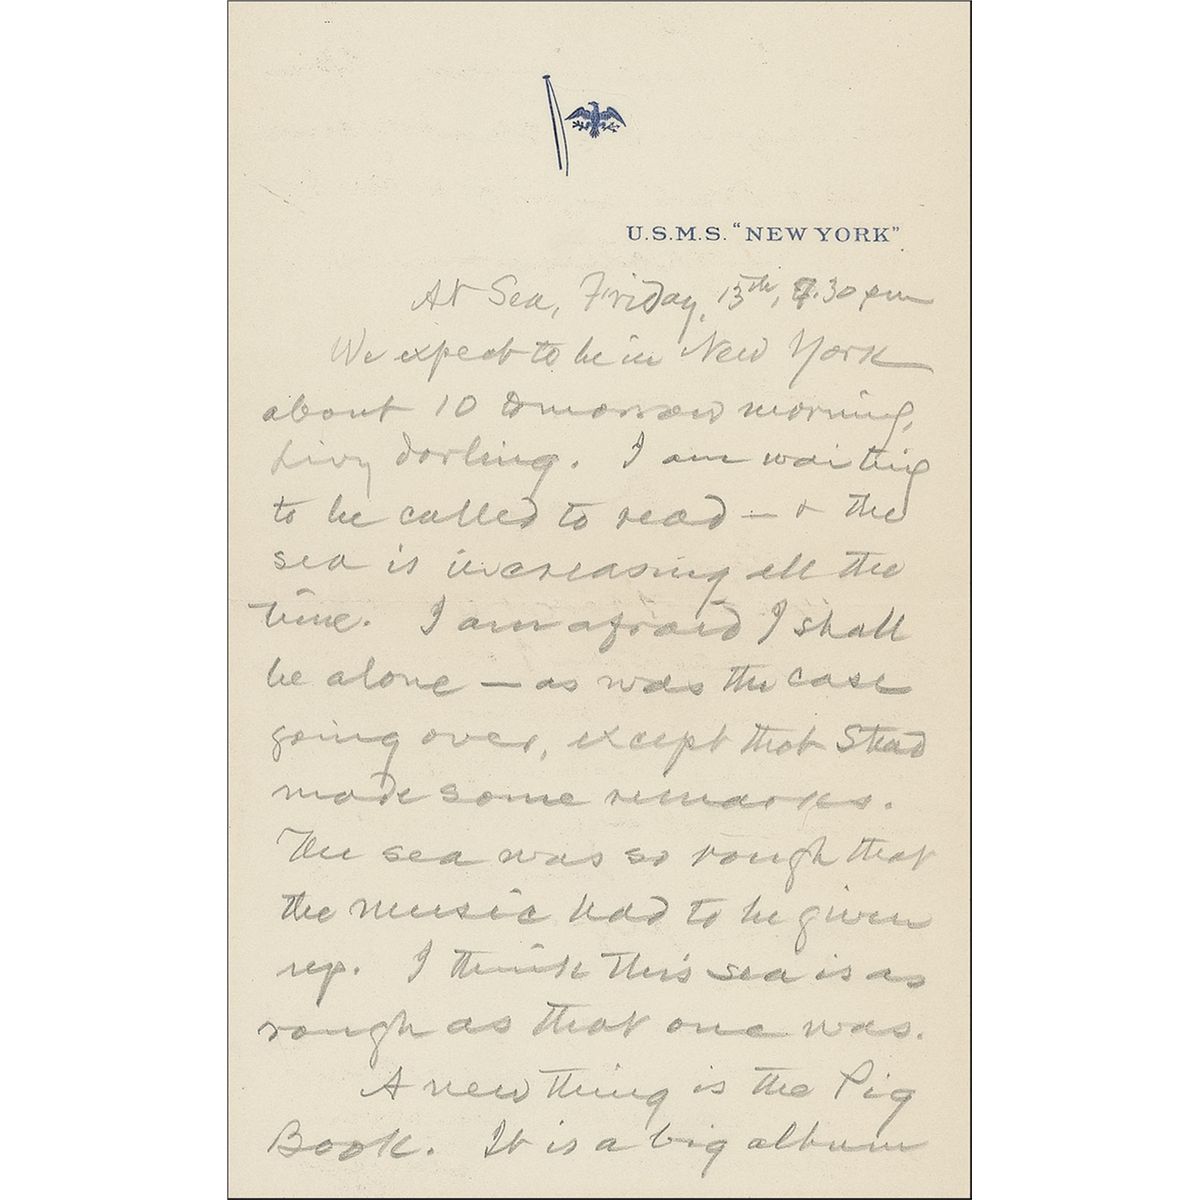 U.S.M.S. "NEW YORK"
At Sea, Friday, 13th, 8.30 pm
We expect to be in New York
about 10 tomorrow morning,
Livy darling. I am waiting
to be called to read — & the
sea is increasing all the
time. I am afraid I shall
be alone — as was the case
going over, except that Stead
made some remarks.
The sea was so rough that
the music had to be given
up. I think this sea is as
rough as that one was.
A new thing is the Pig
Book. It is a big album